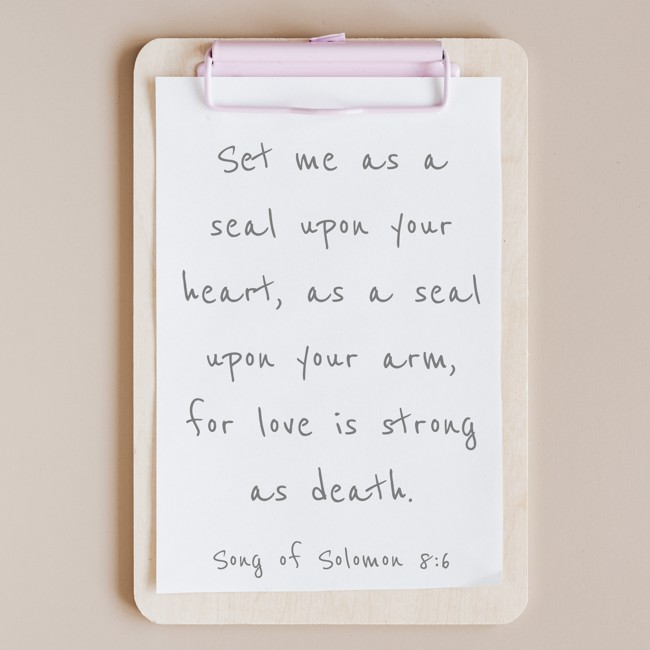 Set me as a
seal upon your
heart, as a seal
upon your arm,
for love is strong
as death.
Song of Solomon 8:6